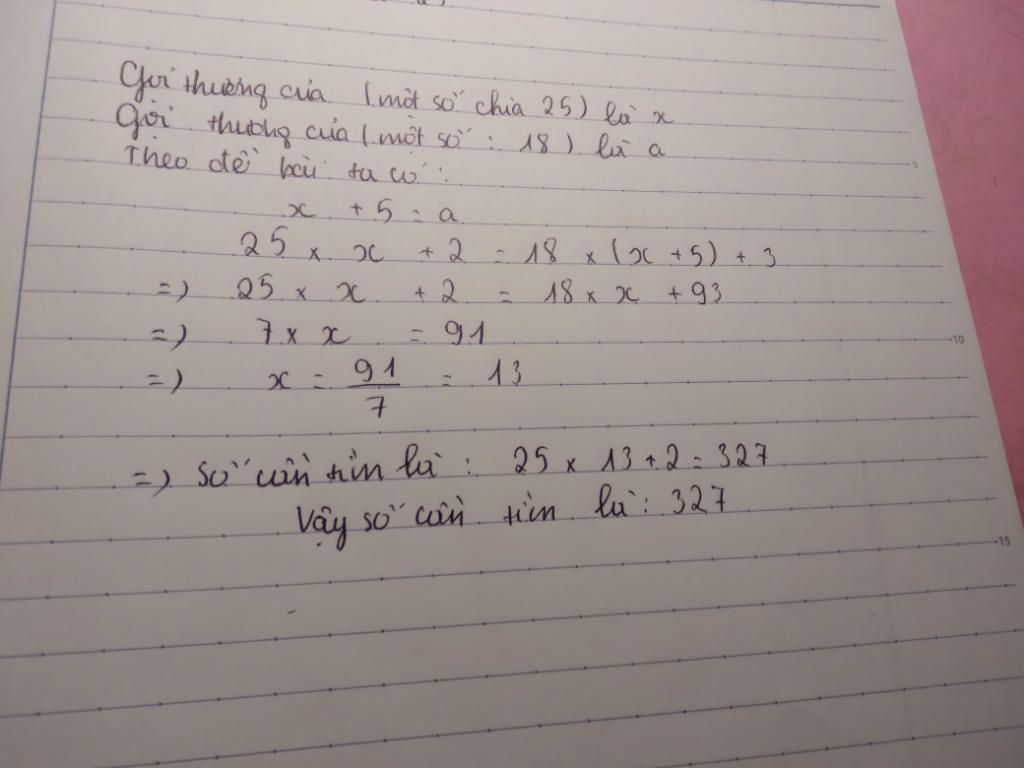 Gọi thương của (một số chia 25) là x
Gọi thương của (một số : 18) là a
Theo đề bài ta có :
x + 5 = a
25 × x + 2 = 18 × (x + 5) + 3
=) 25 × x + 2 = 18 × x + 93
=) 7 × x = 91
=) x = 91/7 = 13
=) Số cần tìm là : 25 × 13 + 2 = 327
Vậy số cần tìm là : 327
5
10
15